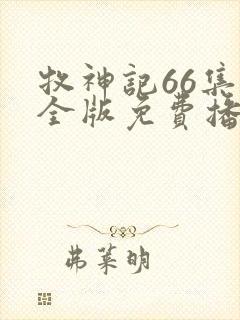 牧神記66集
全版免費播
弗萊明